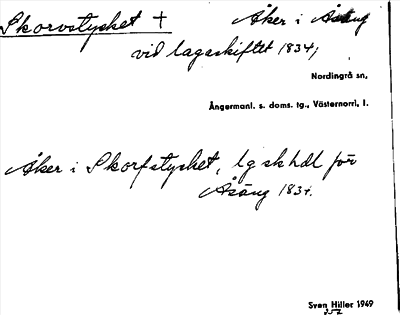 Skorvstycket + Åker i Åsäng
vid lagaskiftet 1834;
Nordingrå sn,
Ångermanl. s. doms. tg., Västernorrl. l.
Åker i Skorfstycket, lg sk hdl för
Åsäng 1834.
Sven Hiller 1949